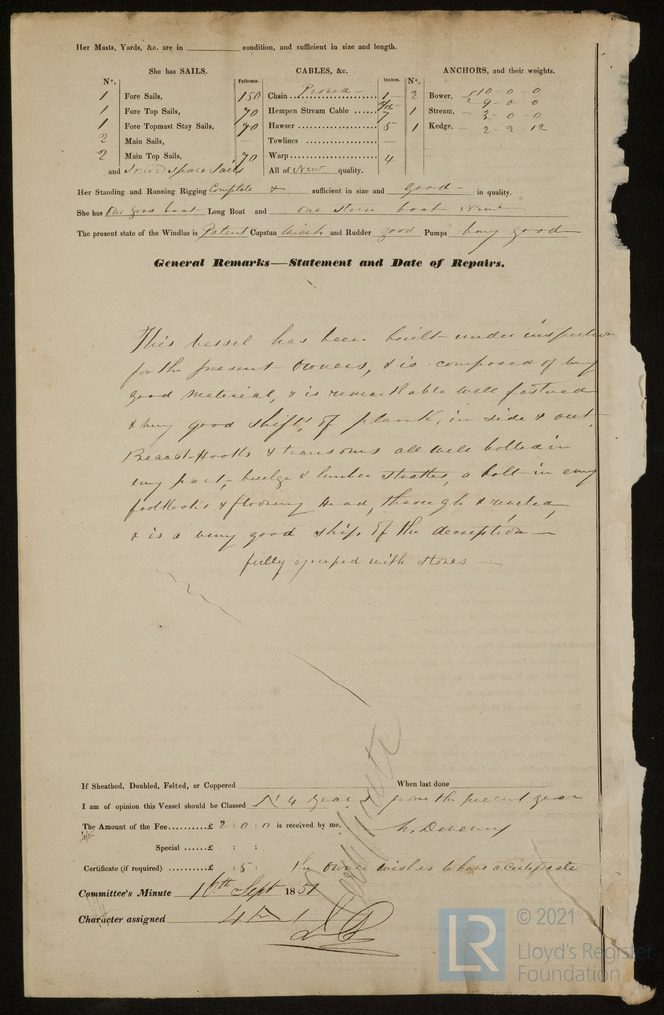 Her Masts, Yards, &c. are in condition, and sufficient in size and length.
She has SAILS. CABLES, &c. ANCHORS, and their weights.
N°. Fathoms. Inches. N°.
1 Fore Sails, 150 Chain Proved 1 2 Bower, 10-0-0
9-0-0
1 Fore Top Sails, 70 Hempen Stream Cable 7 1 Stream, 3-0-0
1 Fore Topmast Stay Sails, 70 Hawser 5 1 Kedge, 2-2-12
2 Main Sails, — Towlines —
2 Main Top Sails, 70 Warp 4
and Sails All of New quality.
Her Standing and Running Rigging Complete & sufficient in size and good in quality.
She has One boat Long Boat and one stern boat new
The present state of the Windlas is Patent Capstan winch and Rudder good Pumps very good
General Remarks—Statement and Date of Repairs.
This vessel has been built under inspection
for the present Owners, & is composed of very
good material, & is remarkable well fastned
& very good shifts of plank, in side & out,
Breast-Hooks & transoms all well bolted in
every part, & a bolt in every
foothooks & flooring Head, through &
& is a very good ship of the description
fully equiped with stores
If Sheathed, Doubled, Felted, or Coppered When last done
I am of opinion this Vessel should be Classed 4 years from the present year
The Amount of the Fee £ 2 : 0 : 0 is received by me,
Special £ : :
Certificate (if required) : 5 : The Owner wishes to have a certificate
Committee's Minute 16th Sept 1851
Character assigned 4 A 1
© 2021
LR
Lloyd's Register
Foundation